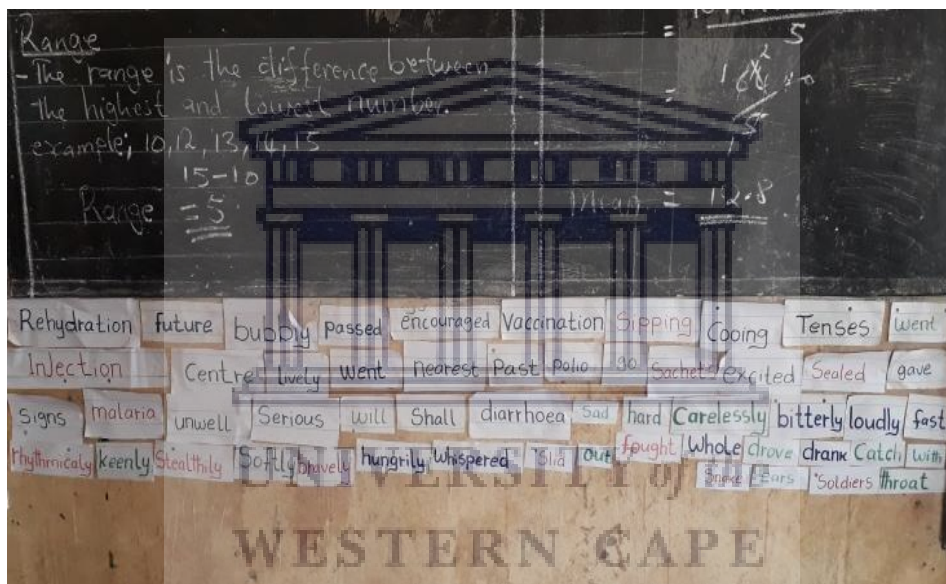 Range
- The range is the difference between
the highest and lowest number.
example; 10, 12, 13, 14, 15
15-10
Range = 5
=
5
=
5
Mean = 12.8
Rehydration future bubbly passed encouraged Vaccination Sipping Cooing Tenses went
Injection Centre lively went nearest Past polio go Sachets excited Sealed gave
Signs malaria unwell Serious will Shall diarrhoea Sad hard Carelessly bitterly loudly fast
rhythmicaly keenly Stealthily Softly bravely hungrily whispered Slid out fought Whole drove drank Catch with
Smoke Ears Soldiers throat
UNIVERSITY of the
WESTERN CAPE